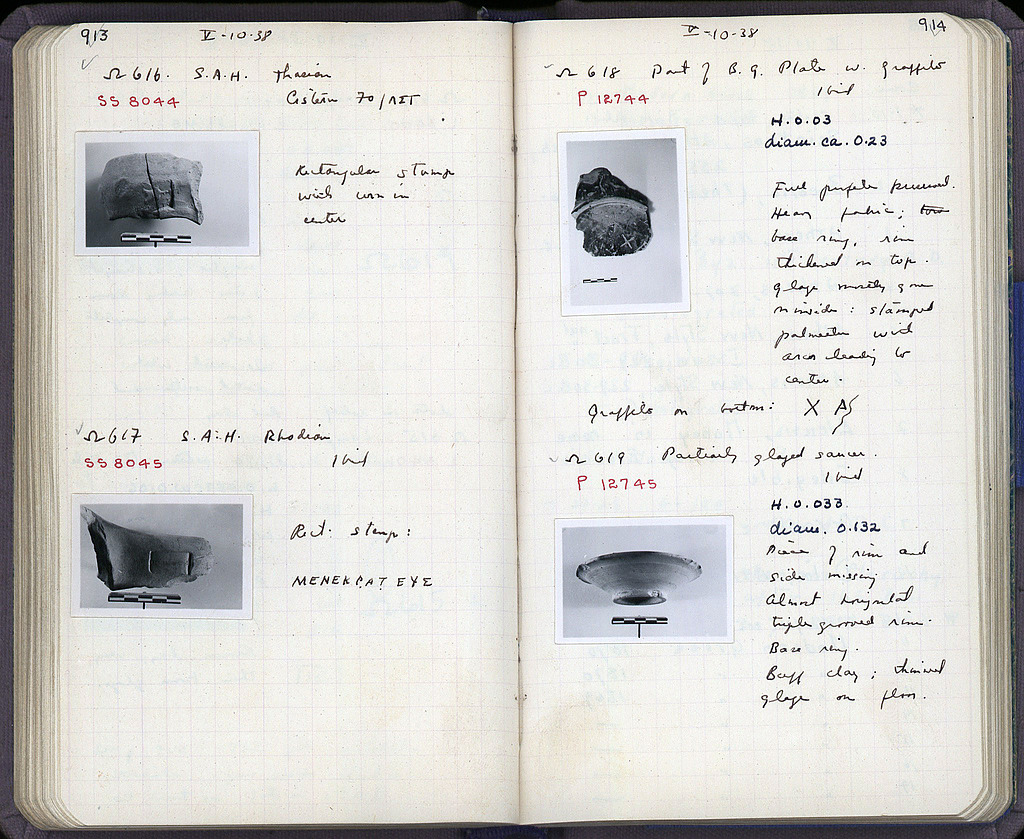 913
V-10-38
Ω 616. S.A.H. Thasian
SS 8044
Cistern 70/ΛΣΤ
Rectangular stamp
with urn in
center
Ω 617 S.A.H. Rhodian
SS 8045
Ibid
Rect. stamp:
ΜΕΝΕΚΡΑΤΕΥΣ
914
V-10-38
Ω 618 Part of B.G. Plate w. graffito
P 12744
Ibid
H. 0.03
diam. ca. 0.23
Full profile preserved.
Heavy fabric;
base ring, rim
thickened on top.
glaze mostly gone
inside: stamped
palmettes with
arcs leading to
center.
Graffito on bottom: X
Ω 619 Partially glazed saucer.
P 12745
Ibid
H. 0.033
diam. 0.132
Piece of rim and
side missing
Almost horizontal
triple grooved rim.
Base ring.
Buff clay; thinned
glaze on floor.